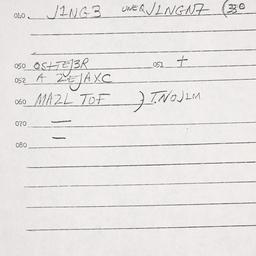 010. J1NG3 UNEQ J1NGN7 (330
050 OSTEJ3R 051 +
052 A ZEJAXC
060 MAZL TOF } T.NOJLM
070 —
080 —